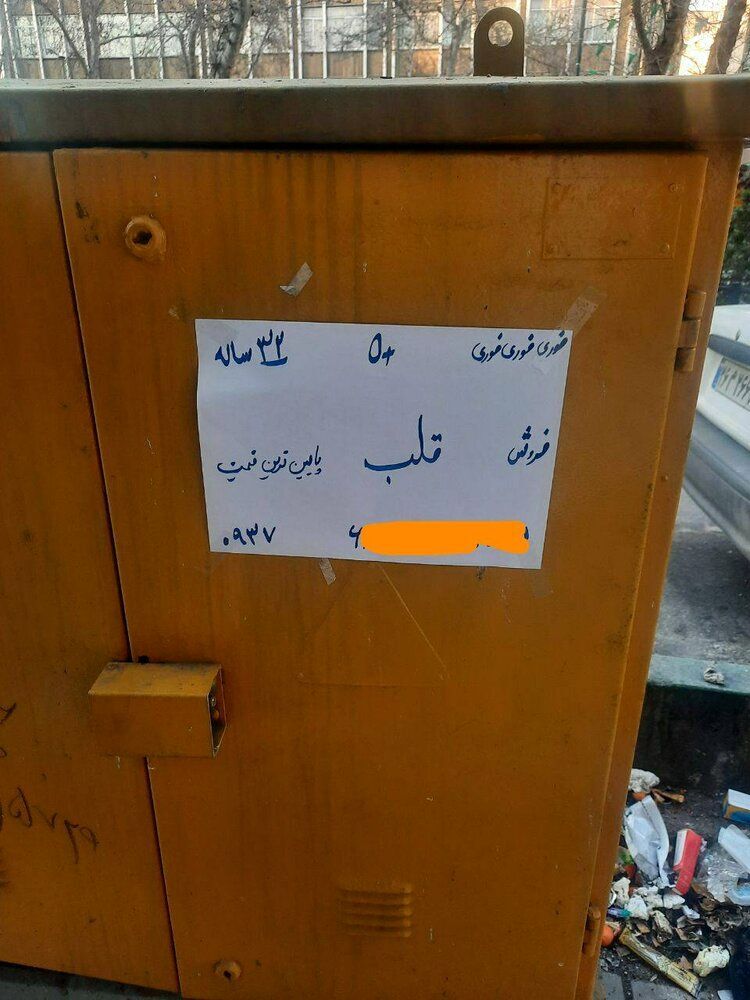 فوری فوری فوری +O ۳۳ ساله
فروش قلب پایین ترین قیمت
۰۹۳۷ ۶